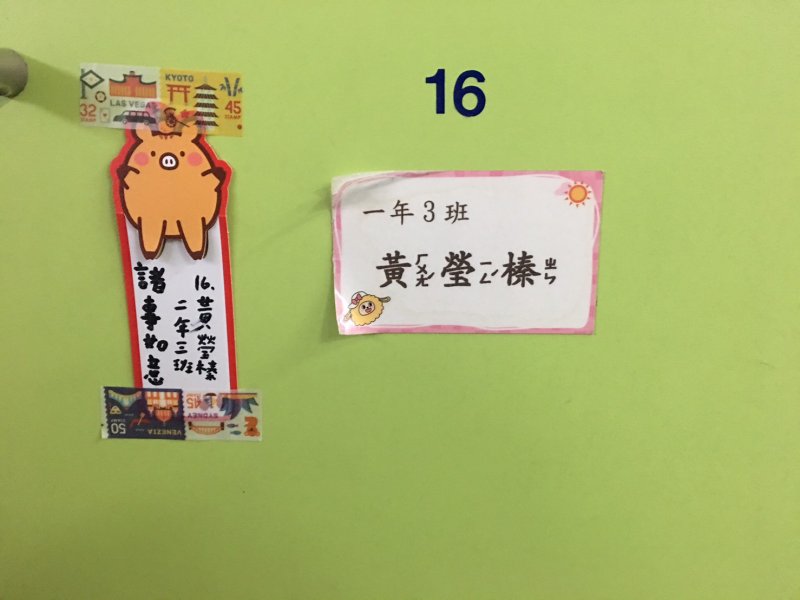 16
一年3班
黃ㄏㄨㄤˊ瑩ㄧㄥˊ榛ㄓㄣ
KYOTO
LAS VEGAS
32
STAMP
45
STAMP
16.黃瑩榛
二年三班
諸事如意
50
STAMP
VENEZIA
SYDNEY
45